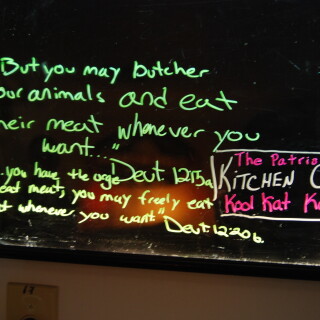 But you may butcher
our animals and eat
heir meat whenever you
want..." Deut 12:15a
you have the urge
eat meat, you may freely eat
t whenever you want" Deut 12:20b.
The Patrio
KITCHEN C
Kool Kat K
18